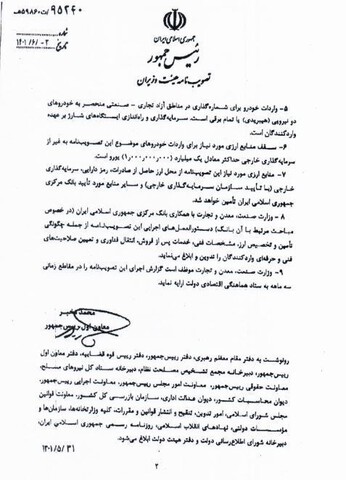 ۹۵۲۴۰/ت۵۹۸۶۰هـ
۱۴۰۱/۶/۰۲
شماره
تاریخ
جمهوری اسلامی ایران
رئیس جمهور
تصویب نامه هیئت وزیران
۵- واردات خودرو برای شماره‌گذاری در مناطق آزاد تجاری - صنعتی منحصر به خودروهای
دو نیرویی (هیبریدی) یا تمام برقی است. سرمایه‌گذاری و راه‌اندازی ایستگاه‌های شارژ بر عهده
واردکنندگان است.
۶- سقف منابع ارزی مورد نیاز برای واردات خودروهای موضوع این تصویب‌نامه به غیر از
سرمایه‌گذاری خارجی حداکثر معادل یک میلیارد (۱,۰۰۰,۰۰۰,۰۰۰) یورو است.
۷- منابع ارزی مورد نیاز این تصویب‌نامه از محل ارز حاصل از صادرات، رمز دارایی، سرمایه‌گذاری
خارجی (با تأیید سازمان سرمایه‌گذاری خارجی) و سایر منابع مورد تأیید بانک مرکزی
جمهوری اسلامی ایران تأمین خواهد شد.
۸- وزارت صنعت، معدن و تجارت با همکاری بانک مرکزی جمهوری اسلامی ایران (در خصوص
مباحث مرتبط با آن بانک) دستورالعمل‌های اجرایی این تصویب‌نامه از جمله چگونگی
تأمین و تخصیص ارز، مشخصات فنی، خدمات پس از فروش، انتقال فناوری و تعیین صلاحیت‌های
فنی و حرفه‌ای واردکنندگان را تدوین و ابلاغ می‌نماید.
۹- وزارت صنعت، معدن و تجارت موظف است گزارش اجرای این تصویب‌نامه را در مقاطع زمانی
سه ماهه به ستاد هماهنگی اقتصادی دولت ارایه نماید.
محمد مخبر
معاون اول رییس‌جمهور
رونوشت به دفتر مقام معظم رهبری، دفتر رییس‌جمهور، دفتر رییس قوه قضاییه، دفتر معاون اول
رییس‌جمهور، دبیرخانه مجمع تشخیص مصلحت نظام، دبیرخانه ستاد کل نیروهای مسلح،
معاونت حقوقی رییس‌جمهور، معاونت امور مجلس رییس‌جمهور، معاونت اجرایی رییس‌جمهور،
دیوان محاسبات کشور، دیوان عدالت اداری، سازمان بازرسی کل کشور، معاونت قوانین
مجلس شورای اسلامی، امور تدوین، تنقیح و انتشار قوانین و مقررات، کلیه وزارتخانه‌ها، سازمان‌ها و
مؤسسات دولتی، نهادهای انقلاب اسلامی، روزنامه رسمی جمهوری اسلامی ایران،
دبیرخانه شورای اطلاع‌رسانی دولت و دفتر هیئت دولت ابلاغ می‌شود.
۱۴۰۱/۵/۳۱
۲